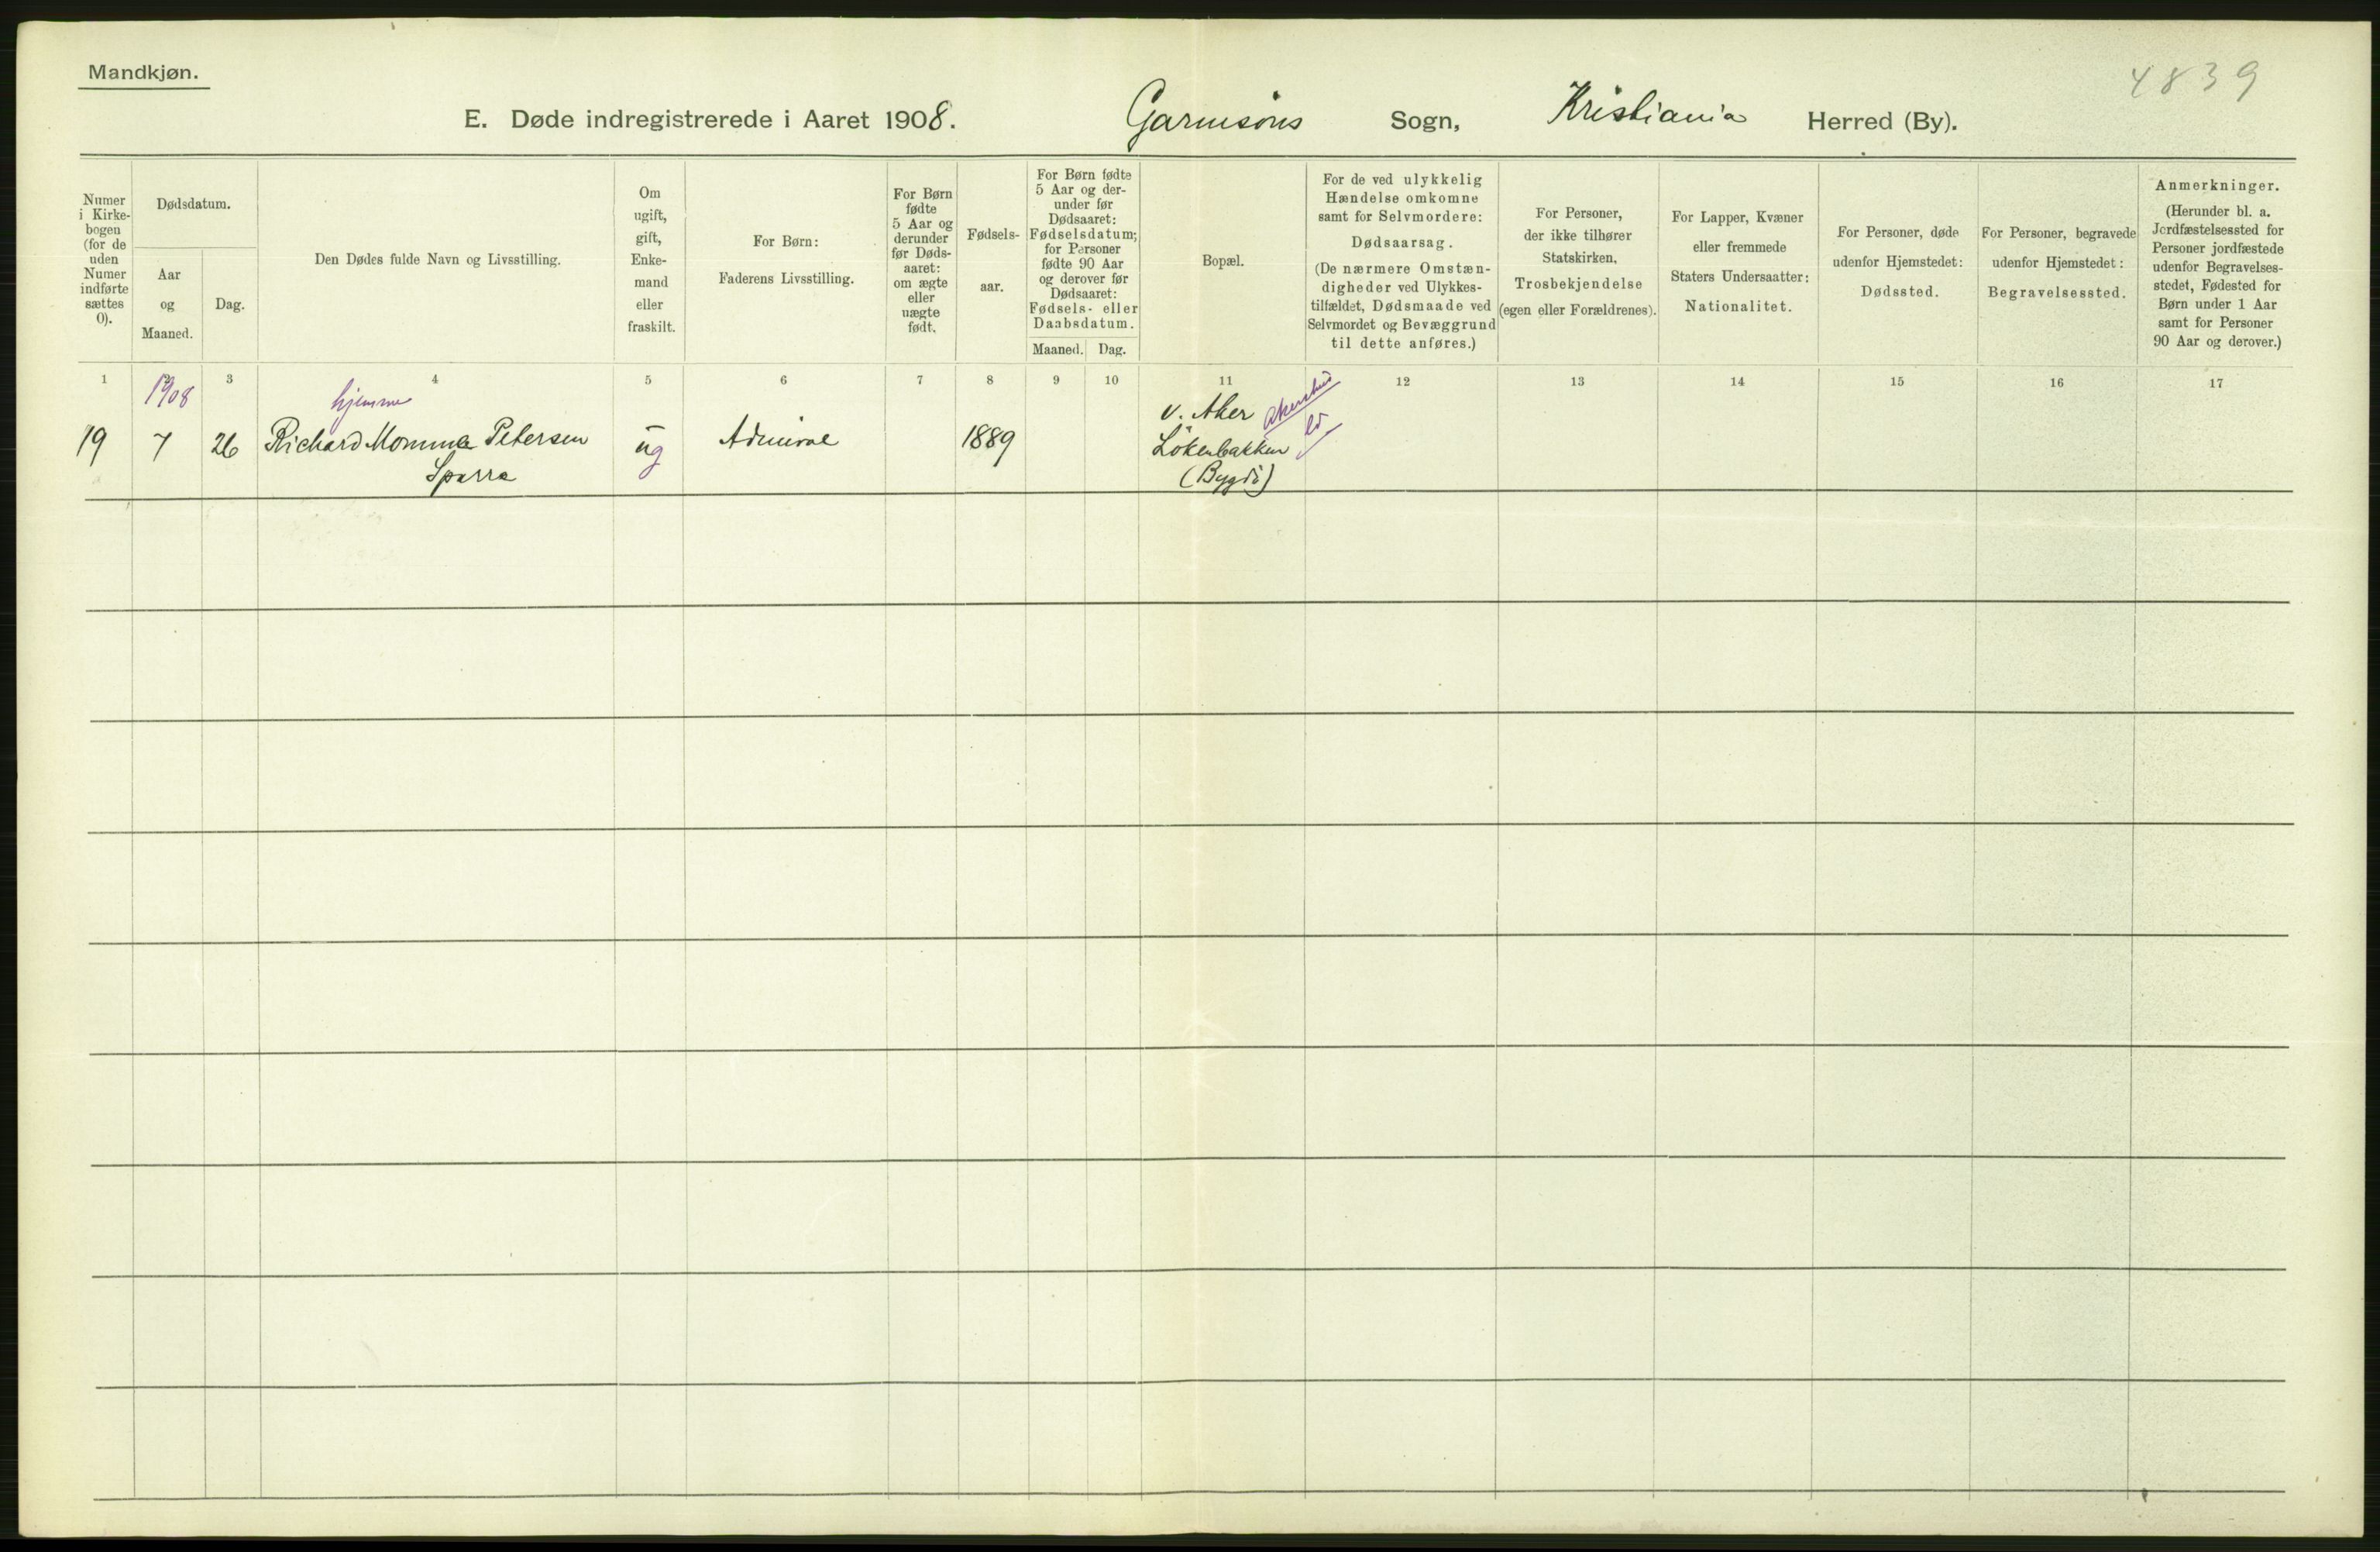 Mandkjøn.
4839
E. Døde indregistrerede i Aaret 1908. Garnisons Sogn, Kristiania Herred (By).
Numer i Kirke-bogen (for de uden Numer indførte sættes 0).
Dødsdatum.
Aar og Maaned.
Dag.
Den Dødes fulde Navn og Livsstilling.
Om ugift, gift, Enke-mand eller fraskilt.
For Børn: Faderens Livsstilling.
For Børn fødte 5 Aar og derunder før Døds-aaret: om ægte eller uægte født.
Fødsels-aar.
For Børn fødte 5 Aar og der-under før Dødsaaret: Fødselsdatum; for Personer fødte 90 Aar og derover før Dødsaaret: Fødsels- eller Daabsdatum.
Maaned. Dag.
Bopæl.
For de ved ulykkelig Hændelse omkomne samt for Selvmordere: Dødsaarsag. (De nærmere Omstæn-digheder ved Ulykkes-tilfældet, Dødsmaade ved Selvmordet og Bevæggrund til dette anføres.)
For Personer, der ikke tilhører Statskirken, Trosbekjendelse (egen eller Forældrenes).
For Lapper, Kvæner eller fremmede Staters Undersaatter: Nationalitet.
For Personer, døde udenfor Hjemstedet: Dødssted.
For Personer, begravede udenfor Hjemstedet: Begravelsessted.
Anmerkninger. (Herunder bl. a. Jordfæstelsessted for Personer jordfæstede udenfor Begravelses-stedet, Fødested for Børn under 1 Aar samt for Personer 90 Aar og derover.)
1 3 4 5 6 7 8 9 10 11 12 13 14 15 16 17
1908 hjemme
V. Aker Akershus
19 7 26 Richard Momme Petersen ug Admiral 1889 Lökenbakken
Sparre (Bygdö)